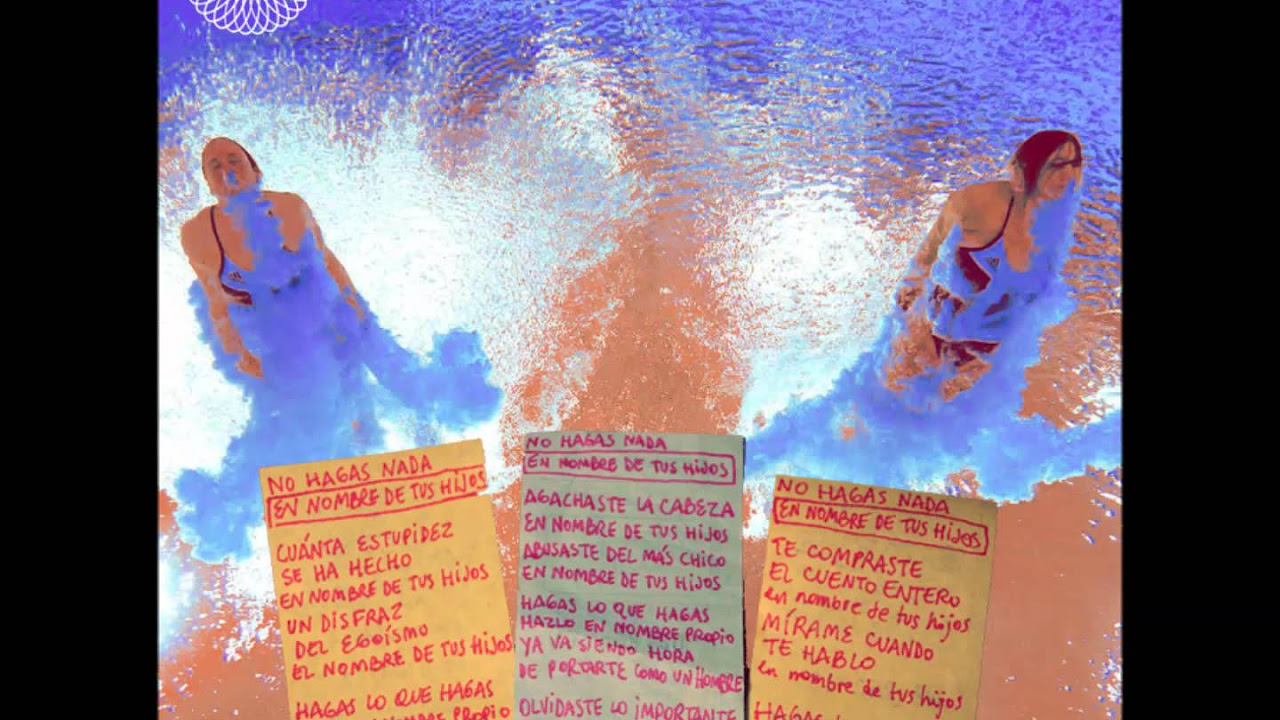 NO HAGAS NADA
EN NOMBRE DE TUS HIJOS
CUÁNTA ESTUPIDEZ
SE HA HECHO
EN NOMBRE DE TUS HIJOS
UN DISFRAZ
DEL EGOÍSMO
EL NOMBRE DE TUS HIJOS
HAGAS LO QUE HAGAS
NOMBRE PROPIO
NO HAGAS NADA
EN NOMBRE DE TUS HIJOS
AGACHASTE LA CABEZA
EN NOMBRE DE TUS HIJOS
ABUSASTE DEL MÁS CHICO
EN NOMBRE DE TUS HIJOS
HAGAS LO QUE HAGAS
HAZLO EN NOMBRE PROPIO
YA VA SIENDO HORA
DE PORTARTE COMO UN HOMBRE
OLVIDASTE LO IMPORTANTE
NO HAGAS NADA
EN NOMBRE DE TUS HIJOS
TE COMPRASTE
EL CUENTO ENTERO
en nombre de tus hijos
MÍRAME CUANDO
TE HABLO
en nombre de tus hijos
HAGAS